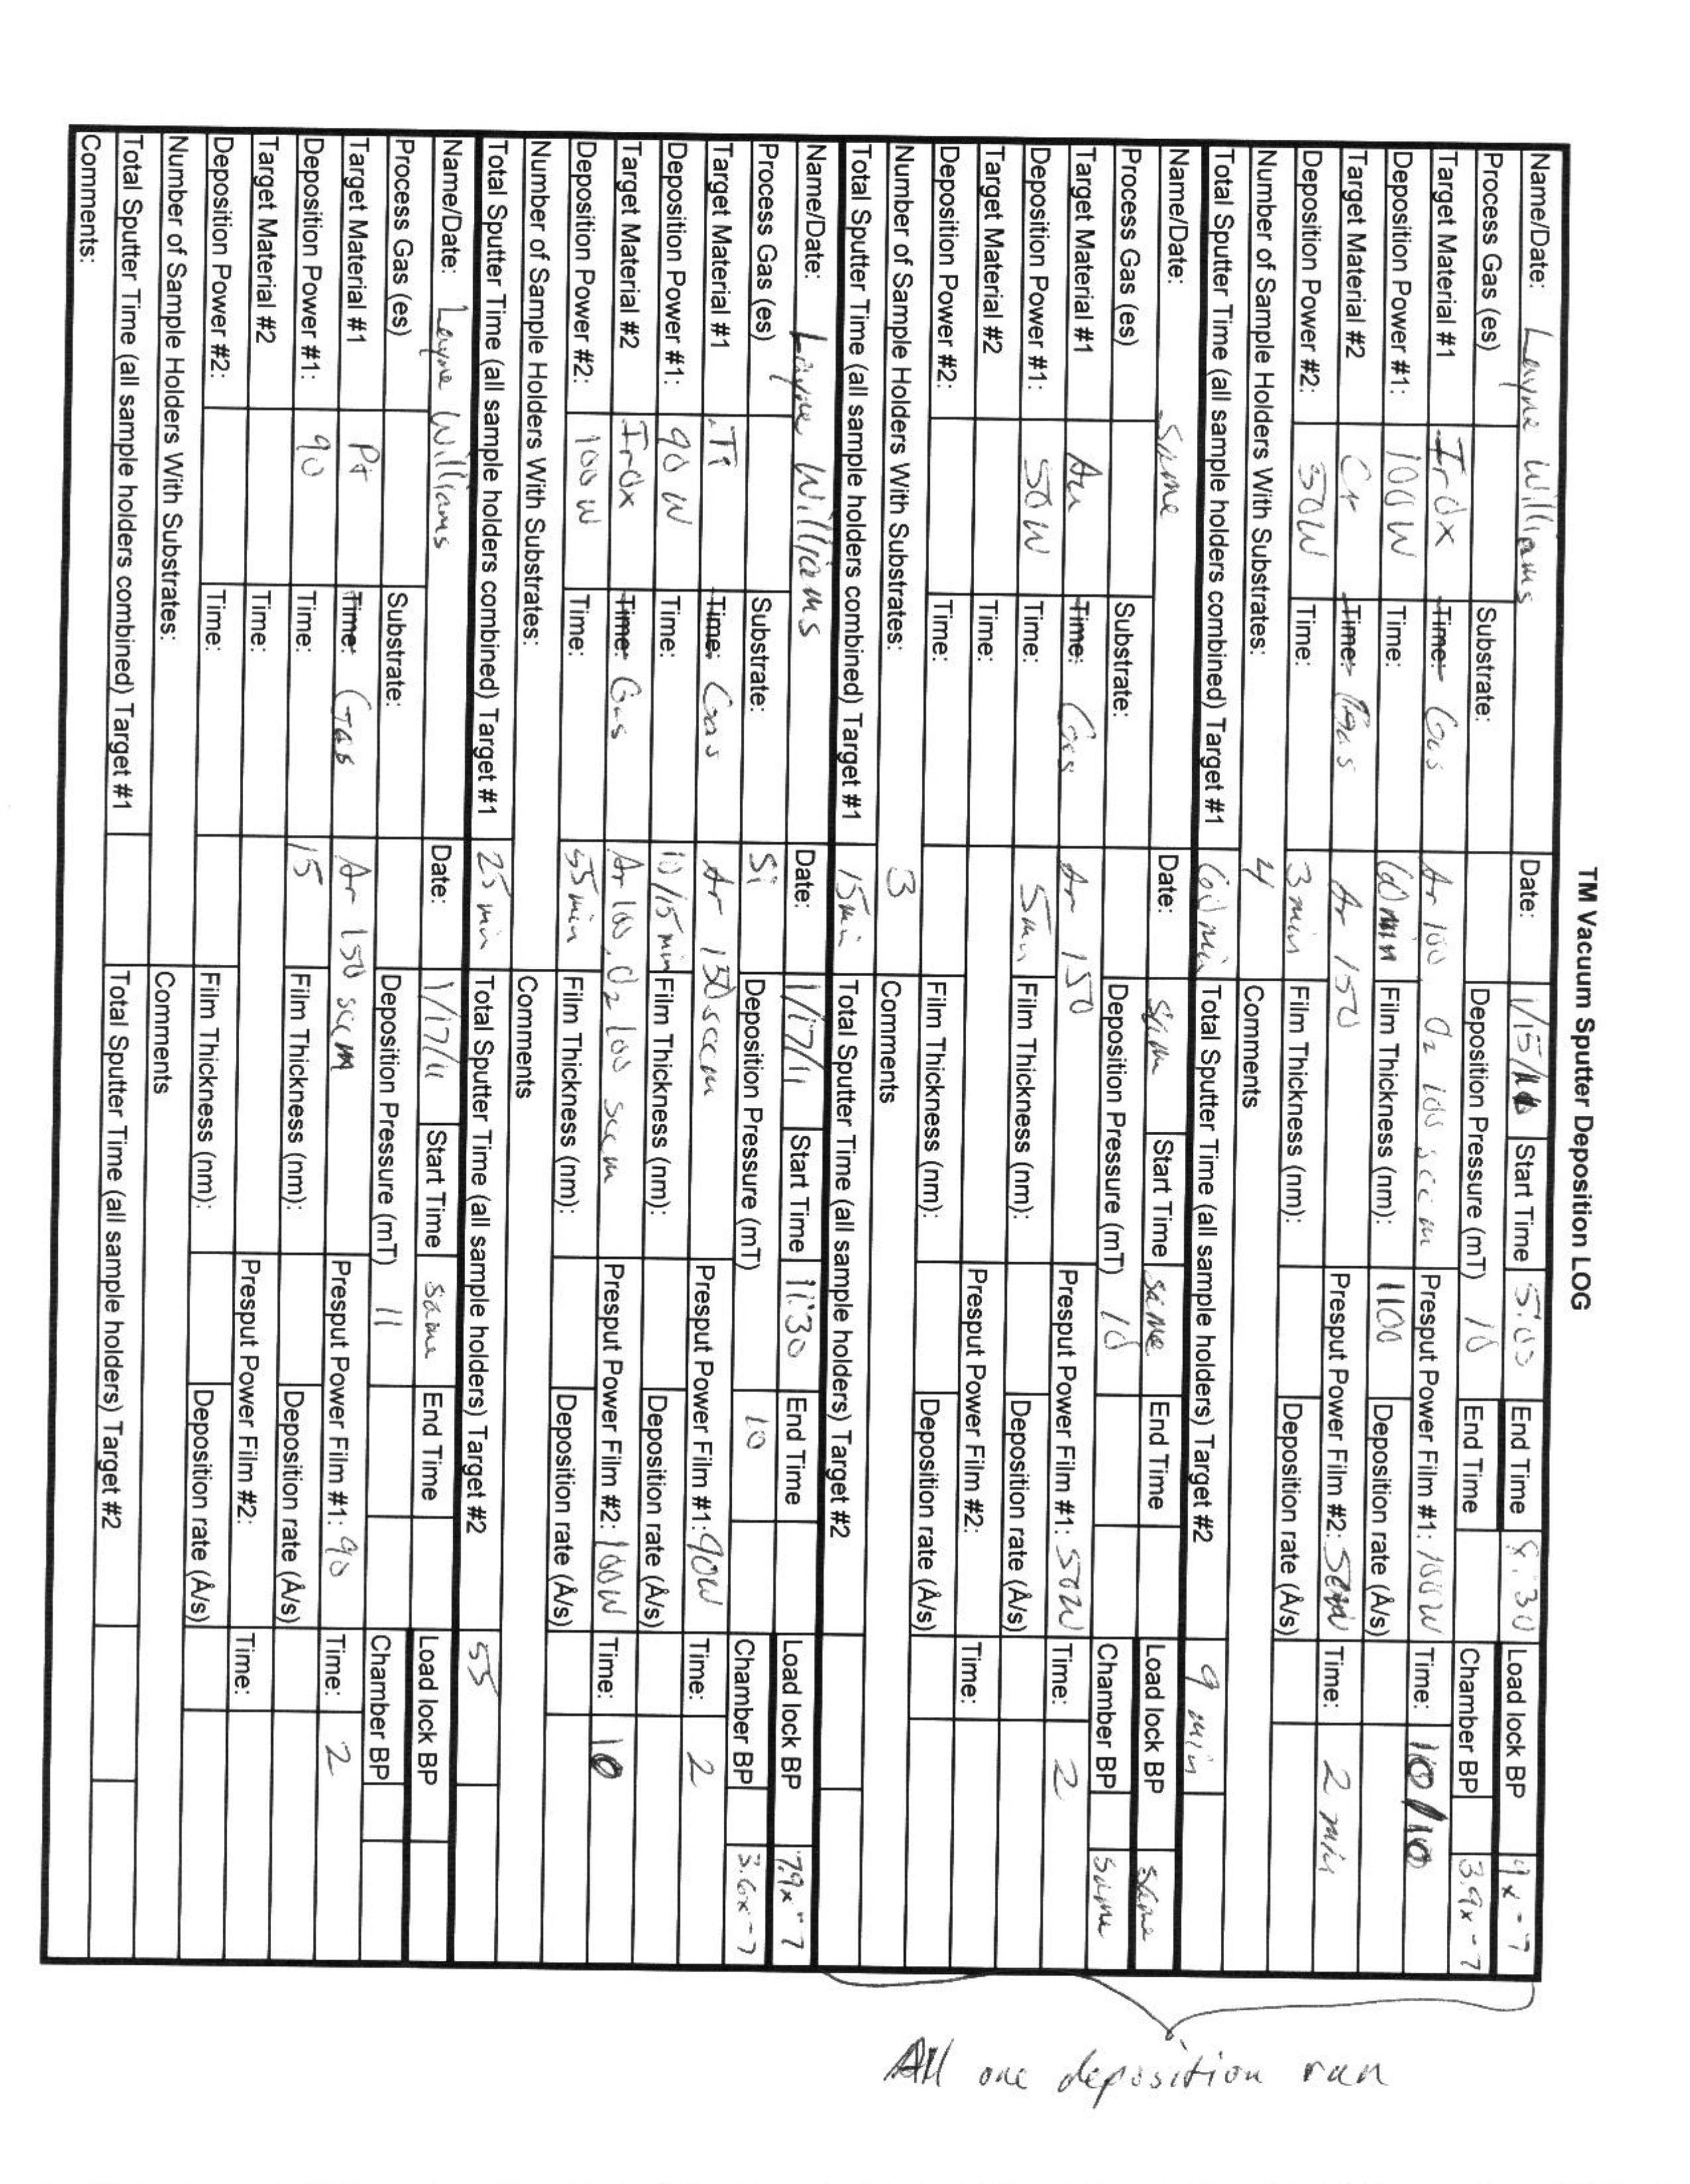 TM Vacuum Sputter Deposition LOG
Name/Date: Layne Williams Date: 1/15/11 Start Time 5:00 End Time 8:30 Load lock BP 9x-7
Process Gas (es) Substrate: Deposition Pressure (mT) 10 End Time Chamber BP 3.9x-7
Target Material #1 IrOx Time: Gas Ar 100 O2 100 sccm Presput Power Film #1: 100W Time: 10/10
Deposition Power #1: 100W Time: 60 min Film Thickness (nm): 1100 Deposition rate (Å/s)
Target Material #2 Cr Time: Gas Ar 150 Presput Power Film #2: 50W Time: 2 min
Deposition Power #2: 50W Time: 3 min Film Thickness (nm): Deposition rate (Å/s)
Number of Sample Holders With Substrates: 4 Comments
Total Sputter Time (all sample holders combined) Target #1 60 min Total Sputter Time (all sample holders) Target #2 9 min
Name/Date: Same Date: Same Start Time Same End Time Load lock BP Same
Process Gas (es) Substrate: Deposition Pressure (mT) 10 Chamber BP Same
Target Material #1 Au Time: Gas Ar 150 Presput Power Film #1: 50W Time: 2
Deposition Power #1: 50W Time: 5min Film Thickness (nm): Deposition rate (Å/s)
Target Material #2 Time: Presput Power Film #2: Time:
Deposition Power #2: Time: Film Thickness (nm): Deposition rate (Å/s)
Number of Sample Holders With Substrates: 3 Comments
Total Sputter Time (all sample holders combined) Target #1 15min Total Sputter Time (all sample holders) Target #2
All one deposition run
Name/Date: Layne Williams Date: 1/17/11 Start Time 11:30 End Time Load lock BP 7.9x-7
Process Gas (es) Substrate: Si Deposition Pressure (mT) 10 Chamber BP 3.6x-7
Target Material #1 Ti Time: Gas Ar 150 sccm Presput Power Film #1: 90W Time: 2
Deposition Power #1: 90 W Time: 10/15 min Film Thickness (nm): Deposition rate (Å/s)
Target Material #2 IrOx Time: Gas Ar 100, O2 100 sccm Presput Power Film #2: 100W Time: 10
Deposition Power #2: 100 W Time: 55 min Film Thickness (nm): Deposition rate (Å/s)
Number of Sample Holders With Substrates: Comments
Total Sputter Time (all sample holders combined) Target #1 25 min Total Sputter Time (all sample holders) Target #2 55
Name/Date: Layne Williams Date: 1/17/11 Start Time Same End Time Load lock BP
Process Gas (es) Substrate: Deposition Pressure (mT) 11 Chamber BP
Target Material #1 Pt Time: Gas Ar 150 sccm Presput Power Film #1: 90 Time: 2
Deposition Power #1: 90 Time: 15 Film Thickness (nm): Deposition rate (Å/s)
Target Material #2 Time: Presput Power Film #2: Time:
Deposition Power #2: Time: Film Thickness (nm): Deposition rate (Å/s)
Number of Sample Holders With Substrates: Comments
Total Sputter Time (all sample holders combined) Target #1 Total Sputter Time (all sample holders) Target #2
Comments: